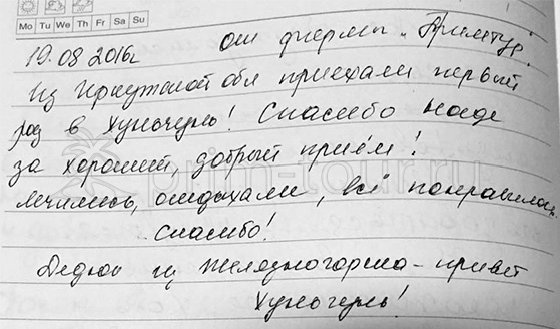 Mo Tu We Th Fr Sa Su
19.08.2016г от фирмы "Примтур"
Из Иркутской обл приехали первый
раз в Хуньчунь! Спасибо Наде
за хороший, добрый приём!
лечились, отдыхали, всё понравилось
Спасибо!
из Железногорска - привет
Хуньчунь!
prim-tour.ru